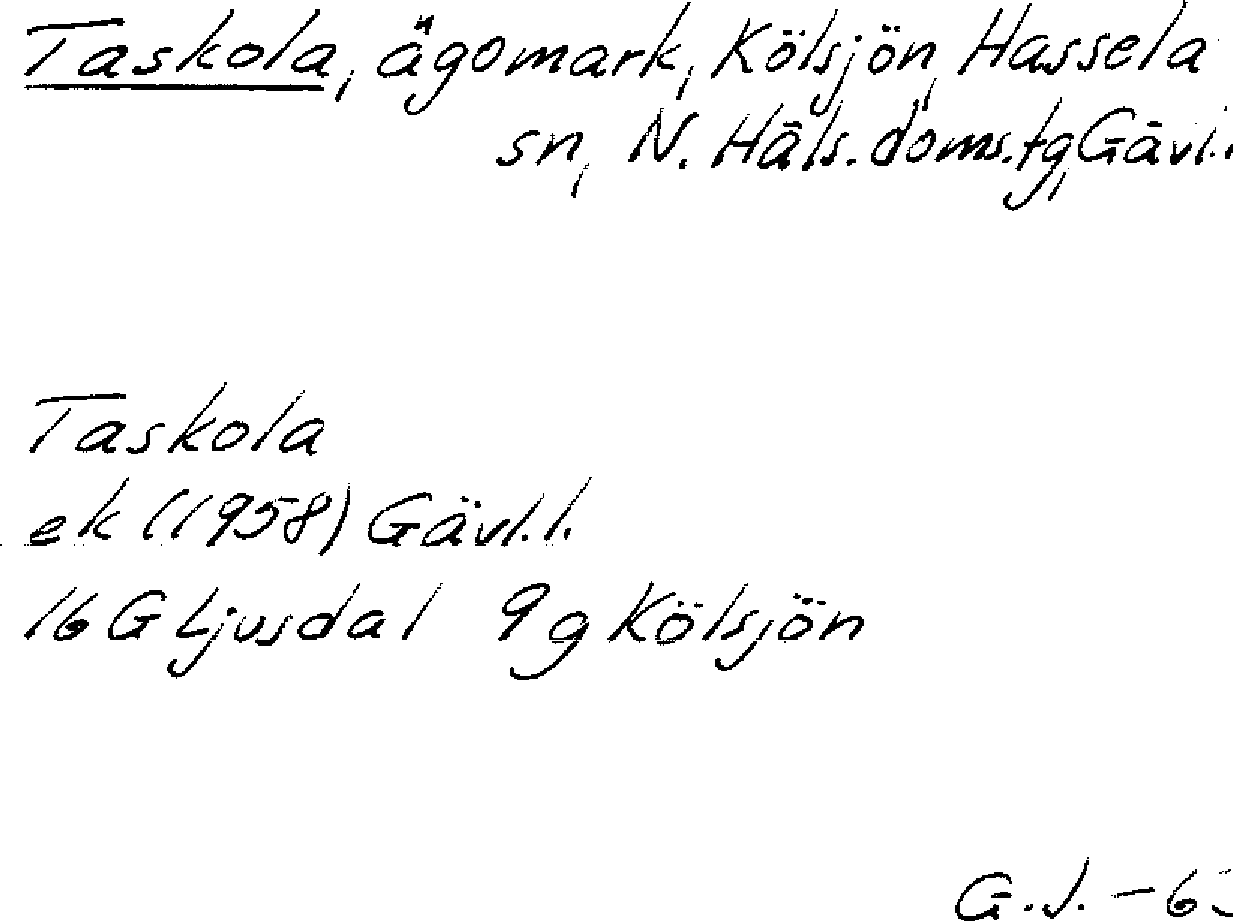 Taskola, ägomark, Kölsjön, Hassela
sn, N. Häls. doms.tg, Gävl.
Taskola
ek (1958) Gävl.l.
16 G Ljusdal 9g Kölsjön
G.J. -